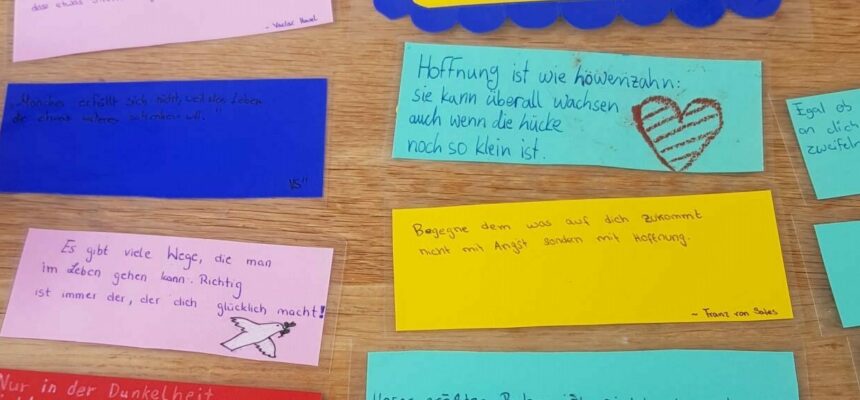 dass etwas
- Vaclav Havel
„Manches erfüllt sich nicht, weil das Leben
etwas schenken will."
VS"
Es gibt viele Wege, die man
im Leben gehen kann. Richtig
ist immer der, der dich glücklich macht!
Nur in der Dunkelheit
Hoffnung ist wie Löwenzahn:
sie kann überall wachsen
auch wenn die Lücke
noch so klein ist.
Begegne dem was auf dich zukommt
nicht mit Angst sondern mit Hoffnung.
~ Franz von Sales
Egal ob
an dich
zweifeln